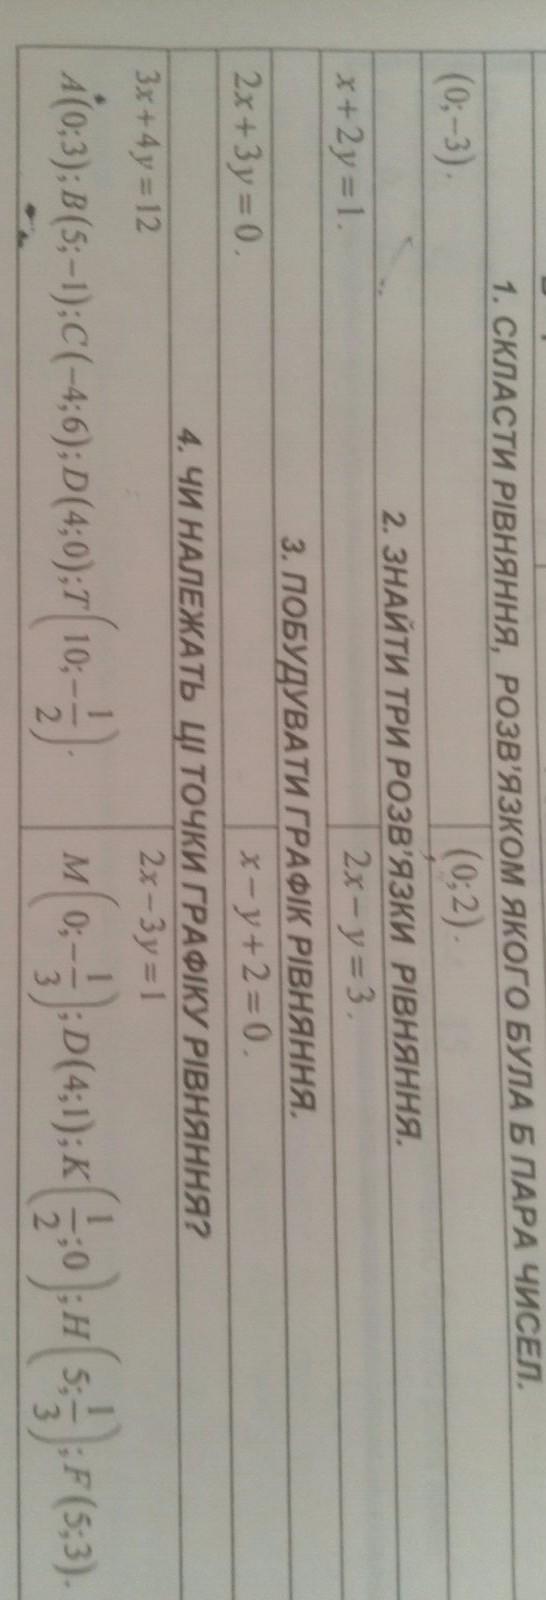 1. СКЛАСТИ РІВНЯННЯ, РОЗВ'ЯЗКОМ ЯКОГО БУЛА Б ПАРА ЧИСЕЛ.
(0;−3). (0;2).
2. ЗНАЙТИ ТРИ РОЗВ'ЯЗКИ РІВНЯННЯ.
x+2y=1. 2x−y=3.
3. ПОБУДУВАТИ ГРАФІК РІВНЯННЯ.
2x+3y=0. x−y+2=0.
4. ЧИ НАЛЕЖАТЬ ЦІ ТОЧКИ ГРАФІКУ РІВНЯННЯ?
3x+4y=12 2x−3y=1
A(0;3); B(5;−1); C(−4;6); D(4;0); T(10;−1/2). M(0;−1/3); D(4;1); K(1/2;0); H(5;1/3); F(5;3).